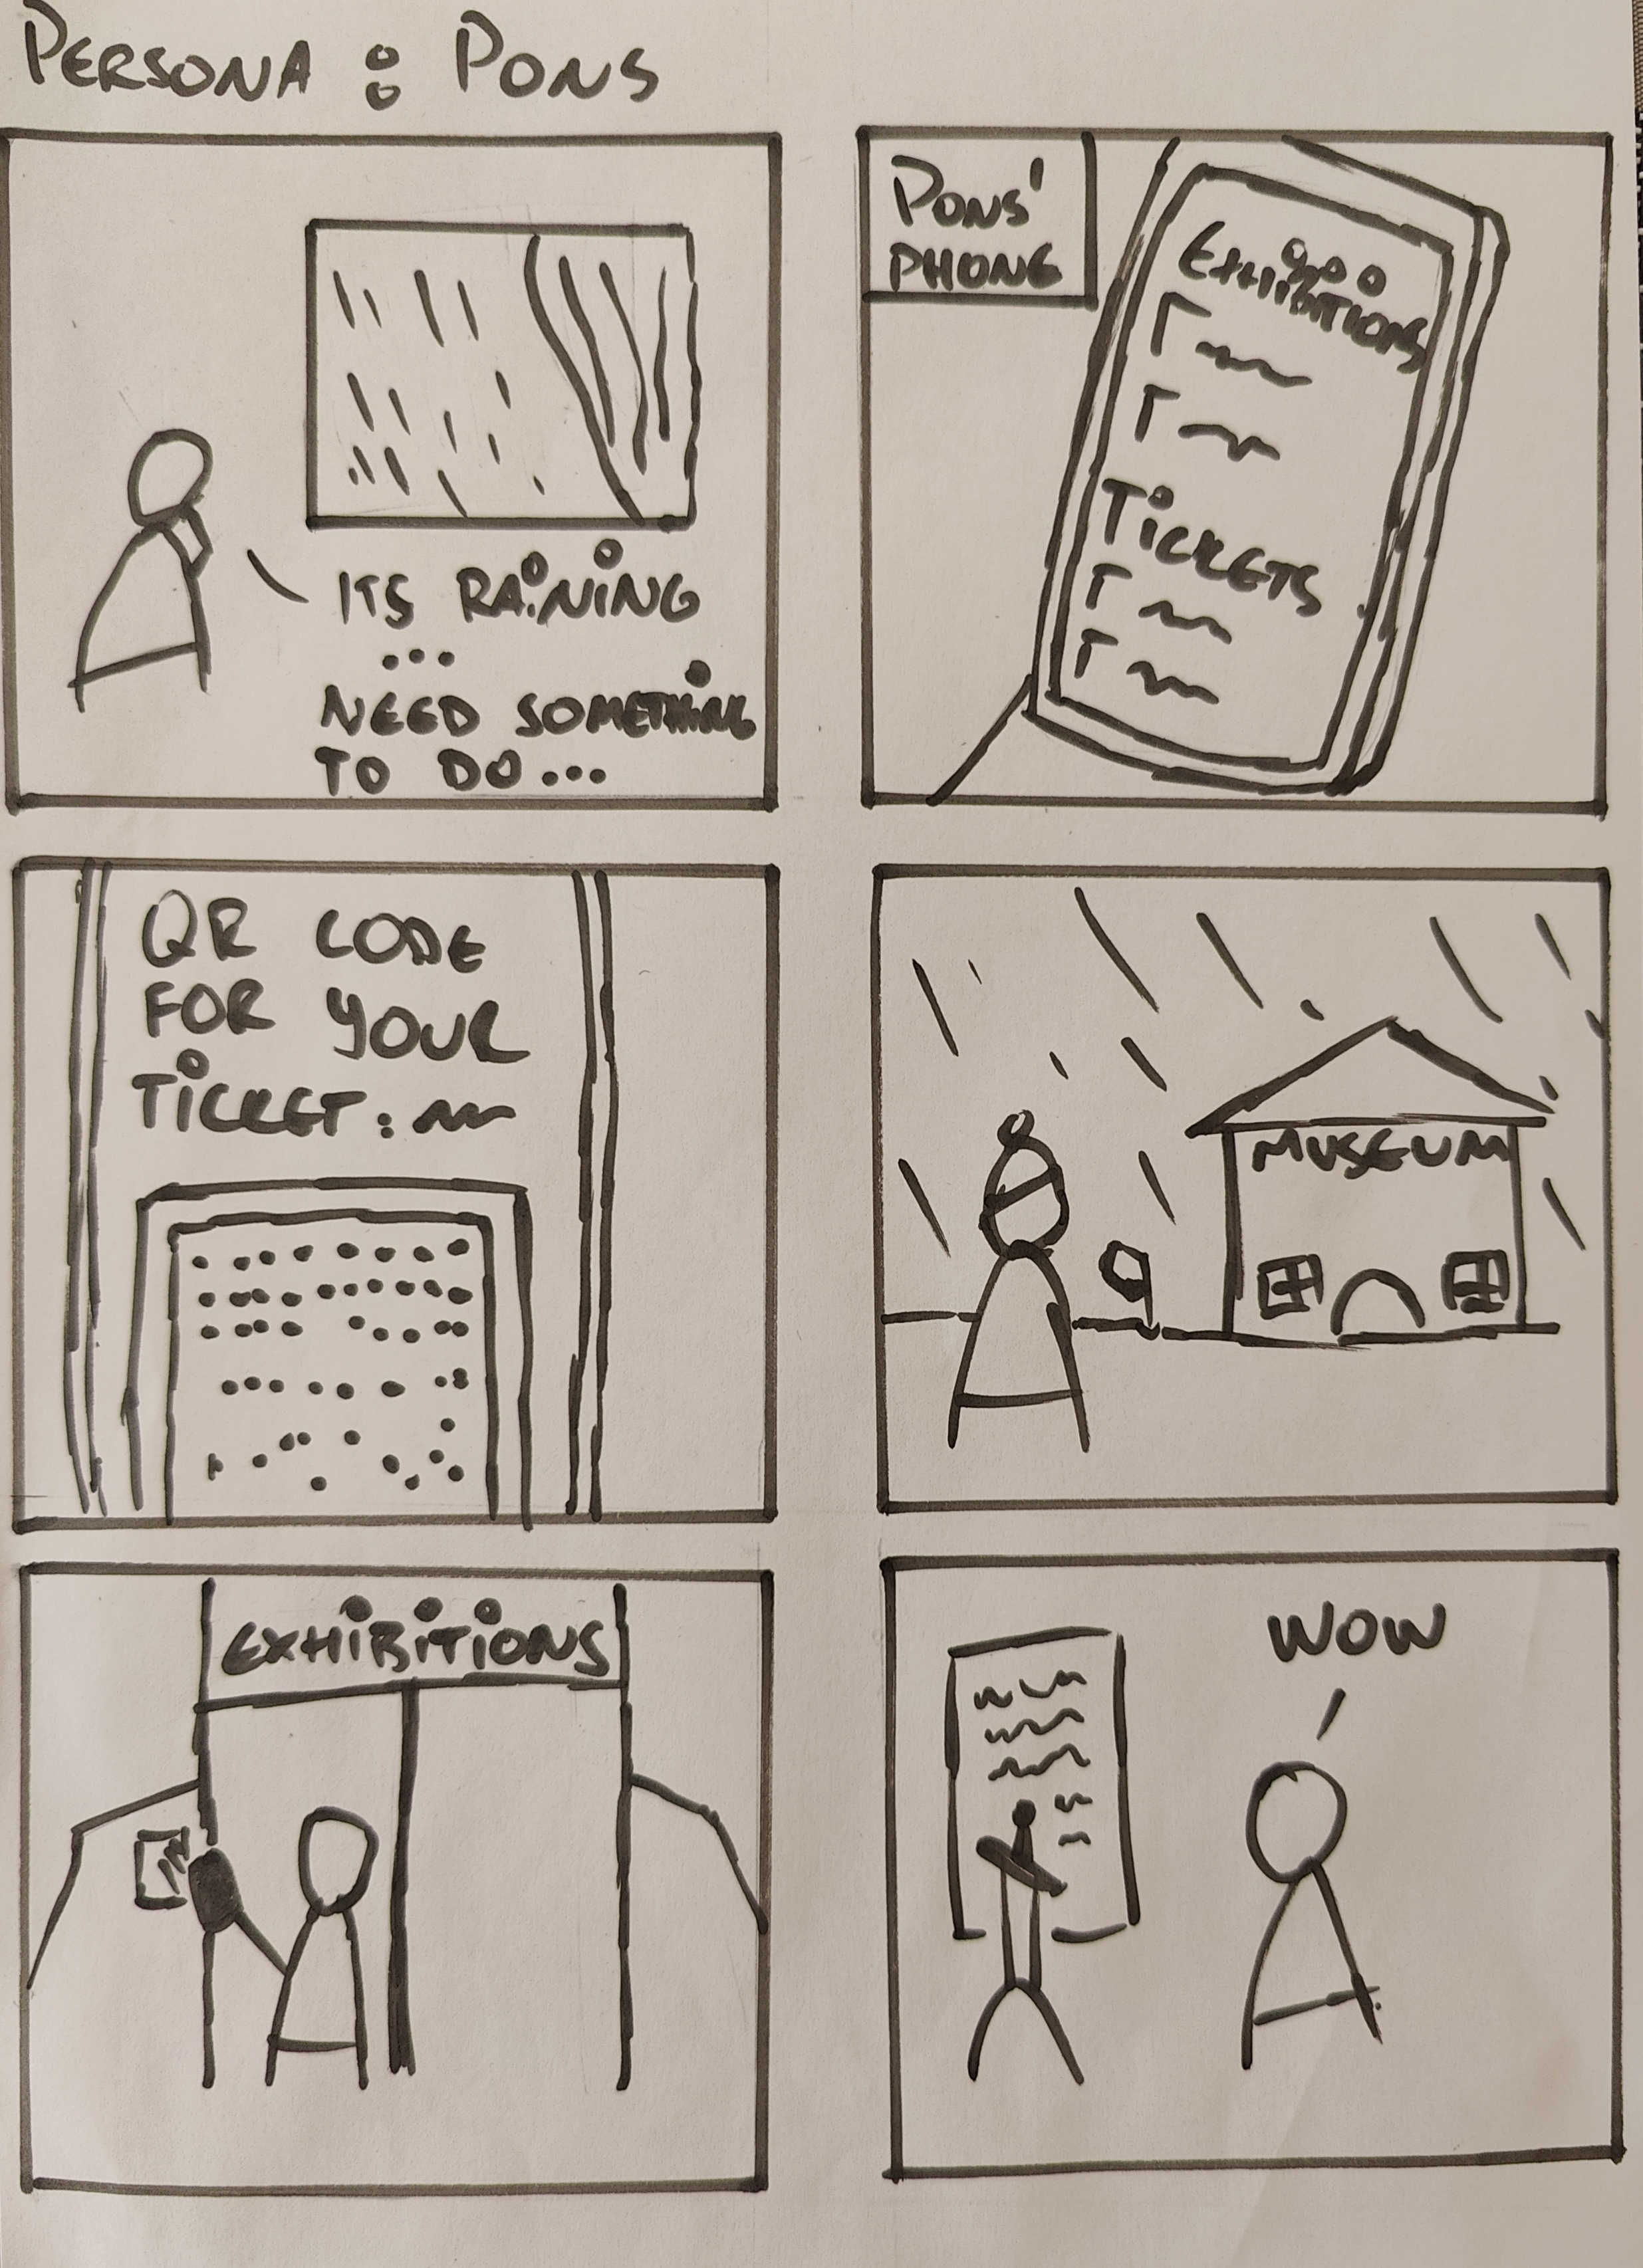 PERSONA : PONS
ITS RAINING
...
NEED SOMETHING
TO DO...
PONS'
PHONE
EXHIBITIONS
TICKETS
QR CODE
FOR YOUR
TICKET:
MUSEUM
EXHIBITIONS
WOW